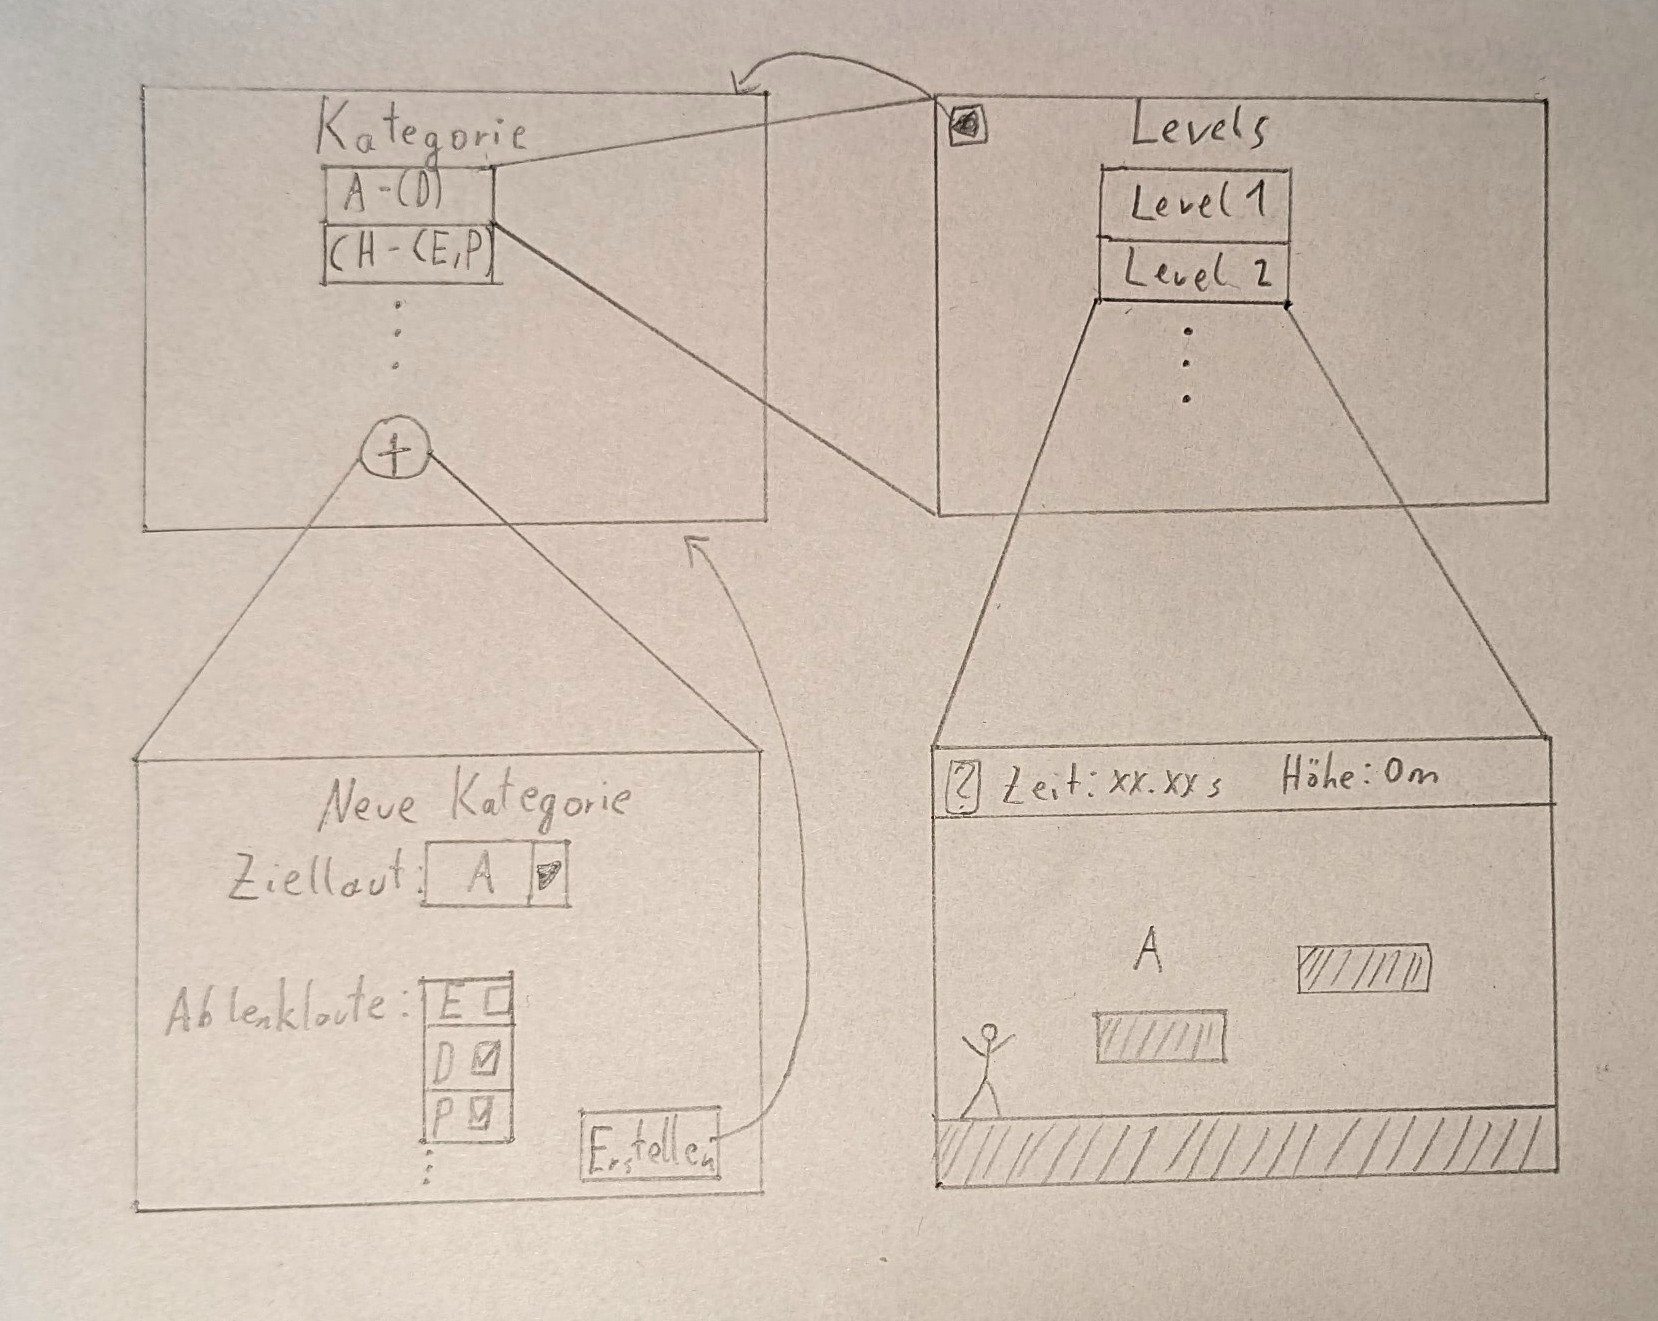 Kategorie
A-(D)
CH-(E,P)
+
Levels
Level 1
Level 2
Neue Kategorie
Ziellaut: A
Ablenklaute: E
D
P
Erstellen
? Zeit: xx.xx s Höhe: 0m
A